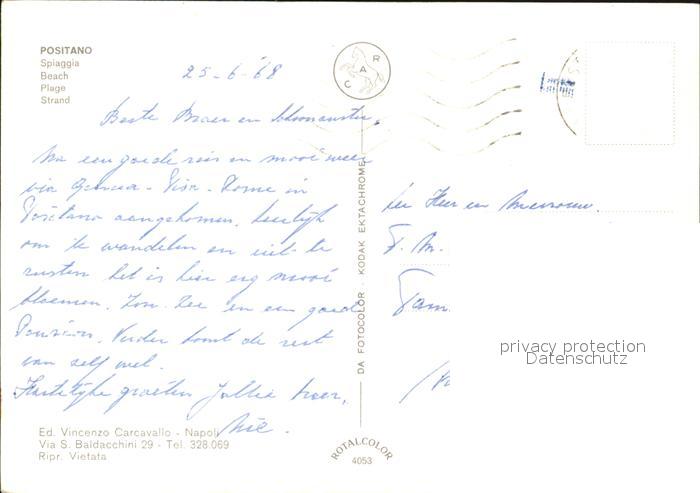 POSITANO
Spiaggia
Beach
Plage
Strand
25-6-'68
CAR
Beste Broer en Schoonzuster,
Na een goede reis en mooi weer
via Genua - Pisa - Rome in
Positano aangekomen. heerlijk
om te wandelen en uit te
rusten het is hier erg mooi
bloemen. Zon. Zee en een goed
Pension. Verder komt de rest
van self wel.
Hartelijke groeten Jullie broer,
Ed. Vincenzo Carcavallo - Napoli
Via S. Baldacchini 29 - Tel. 328.069
Ripr. Vietata
DA FOTOCOLOR · KODAK EKTACHROME
ROTALCOLOR
4053
den Heer en Mevrouw
F. M.
privacy protection
Datenschutz